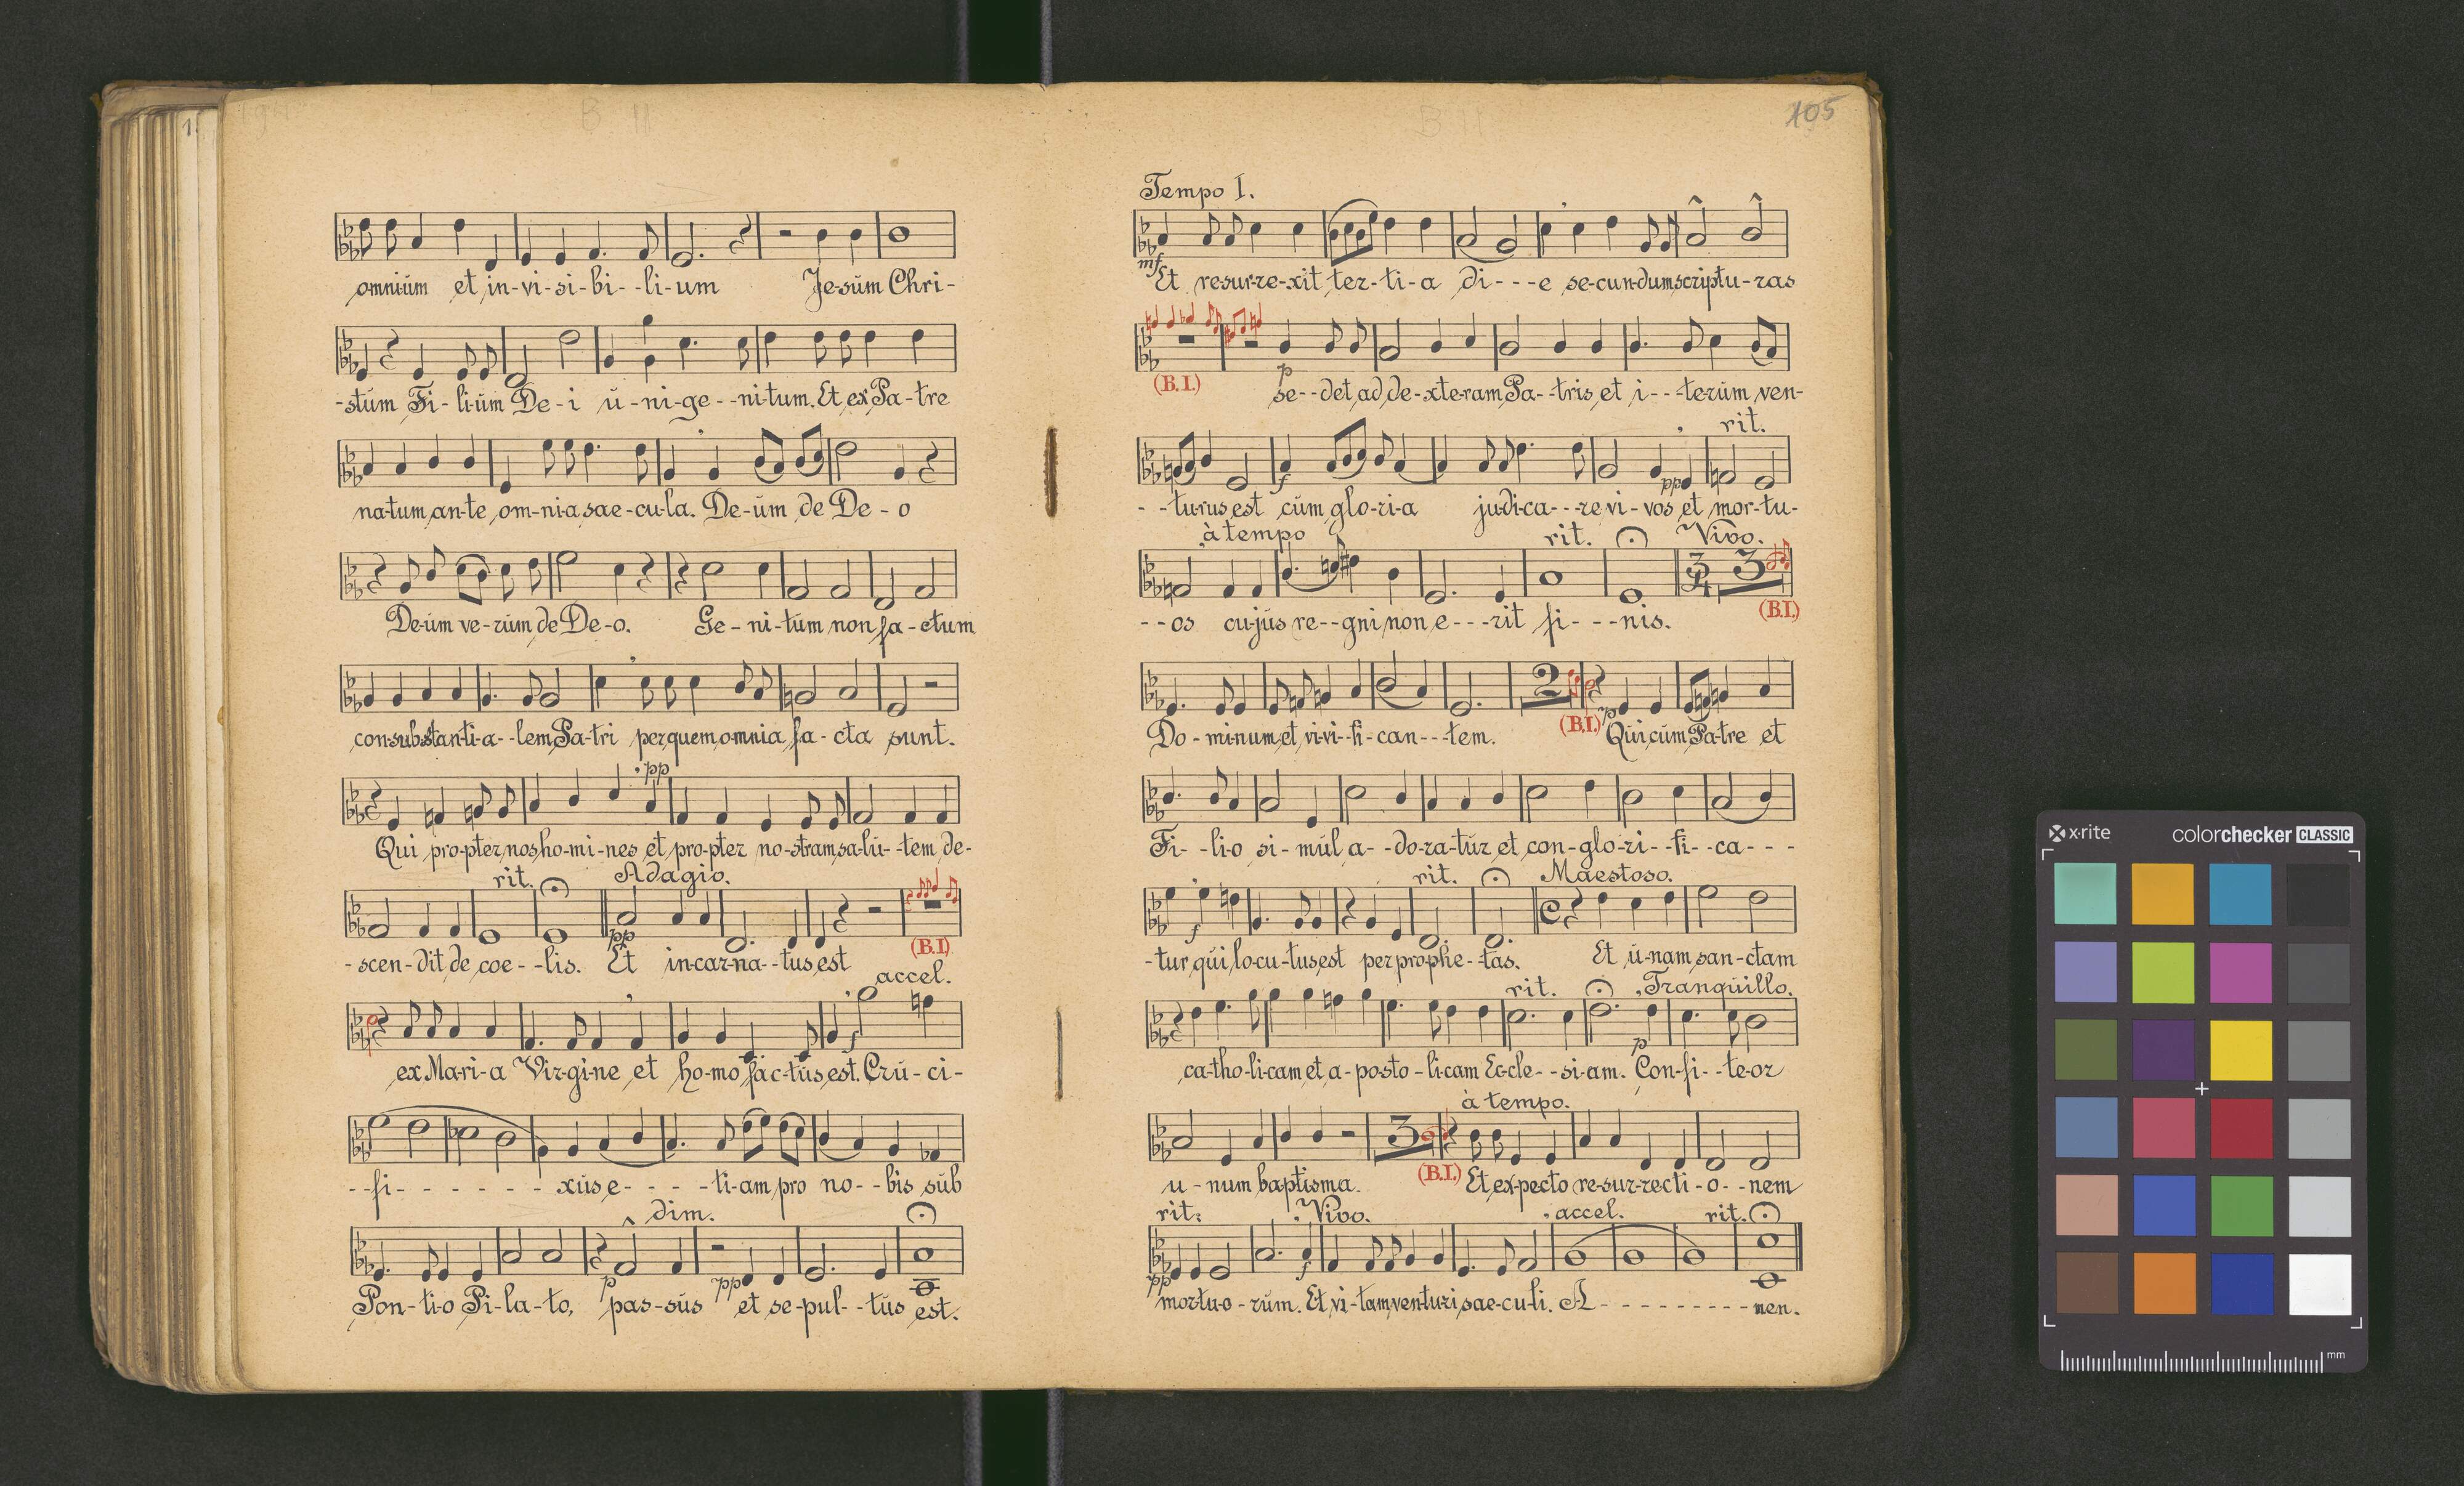 B II
omnium et in-vi-si-bi--li-um Je-sum Chri-
-stum Fi-li-um De-i u-ni-ge--ni-tum. Et ex Pa-tre
na-tum an-te om-ni-a sae-cu-la. De-um de De-o
De-um ve-rum de De-o. Ge-ni-tum non fa-ctum
con-sub-stan-ti-a--lem Pa-tri per quem omnia fa-cta sunt.
pp
Qui pro-pter nos ho-mi-nes et pro-pter no-stram sa-lu--tem de-
rit. Adagio.
pp
-scen-dit de coe--lis. Et in-car-na--tus est (B.I.)
accel.
f
ex Ma-ri-a Vir-gi-ne et ho-mo fac-tus est. Cru-ci-
--fi------xus e----ti-am pro no--bis sub
dim.
p pp
Pon-ti-o Pi-la-to, pas-sus et se-pul--tus est.
B II
105
Tempo I.
mf
Et re-sur-re-xit ter-ti-a di---e se-cun-dum scriptu-ras
p
(B.I.) se--det ad de-xte-ram Pa--tris et i---te-rum ven-
rit.
f pp
--tu-rus est cum glo-ri-a ju-di-ca---re vi-vos et mor-tu-
à tempo rit. Vivo.
3 4 3
--os cu-jus re--gni non e---rit fi---nis. (B.I.)
2
p
Do-mi-num et vi-vi-fi-can---tem. (B.I.) Qui cum Pa-tre et
Fi--li-o si-mul a--do-ra-tur et con-glo-ri--fi--ca---
rit. Maestoso.
f
-tur qui lo-cu-tus est per pro-phe--tas. Et u-nam san-ctam
rit. Tranquillo.
p
ca-tho-li-cam et a-po-sto-li-cam Ec-cle--si-am. Con-fi--te-or
à tempo.
3
u-num baptisma. (B.I.) Et ex-pecto re-sur-recti-o--nem
rit: Vivo. accel. rit.
pp f
mor-tu-o-rum. Et vi-tam ven-tu-ri sae-cu-li. A----------nen.
x·rite colorchecker CLASSIC
mm